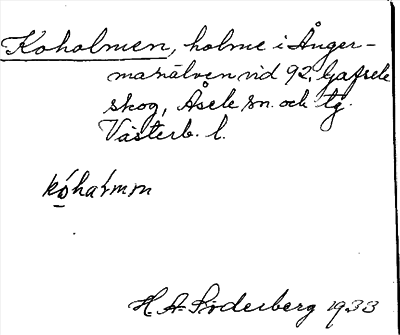 Koholmen, holme i Ånger-
manälven vid 92, Gafsele
skog, Åsele sn. och tg.
Västerb. l.
kóhàĺmm
H. A. Söderberg 1933